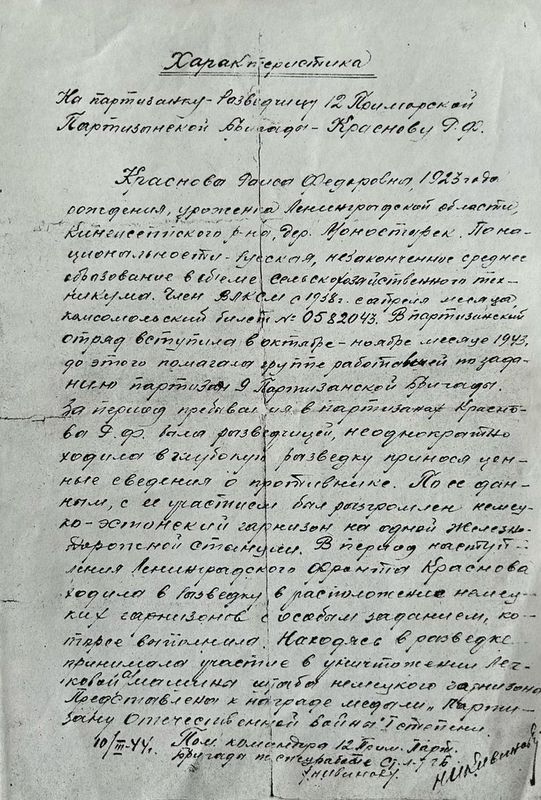 Характеристика
На партизанку-разведчицу 12 Приморской
Партизанской Бригады - Краснову Р.Ф.
Краснова Раиса Федоровна, 1923 года
рождения, уроженка Ленинградской области,
Кингисеппского р-на, дер. Монастырек. По на-
циональности - русская, незаконченное среднее
образование в объеме сельскохозяйственного тех-
никума. Член ВЛКСМ с 1938 г. с апреля месяца,
комсомольский билет № 0582043. В партизанский
отряд вступила в октябре-ноябре месяце 1943,
до этого помагала группе работавшей по зада-
нию партизан 9 Партизанской Бригады.
За период пребывания в партизанах Красно-
ва Р.Ф. была разведчицей, неоднократно
ходила в глубокую разведку принося цен-
ные сведения о противнике. По ее дан-
ным, с ее участием был разгромлен немец-
ко-эстонский гарнизон на одной железно-
дорожной станции. В период наступ-
ления Ленинградского Фронта Краснова
ходила в разведку в расположение немец-
ких гарнизонов с особым заданием, ко-
торое выполнила. Находясь в разведке
принимала участие в уничтожении лег-
ковой машины штаба немецкого гарнизона
Представлена к награде медали "Парти-
зану Отечественной войны" I степени.
10/III-44г. Пом. командира 12 Прим. Парт.
Бригады по спецработе ст. л-т гб